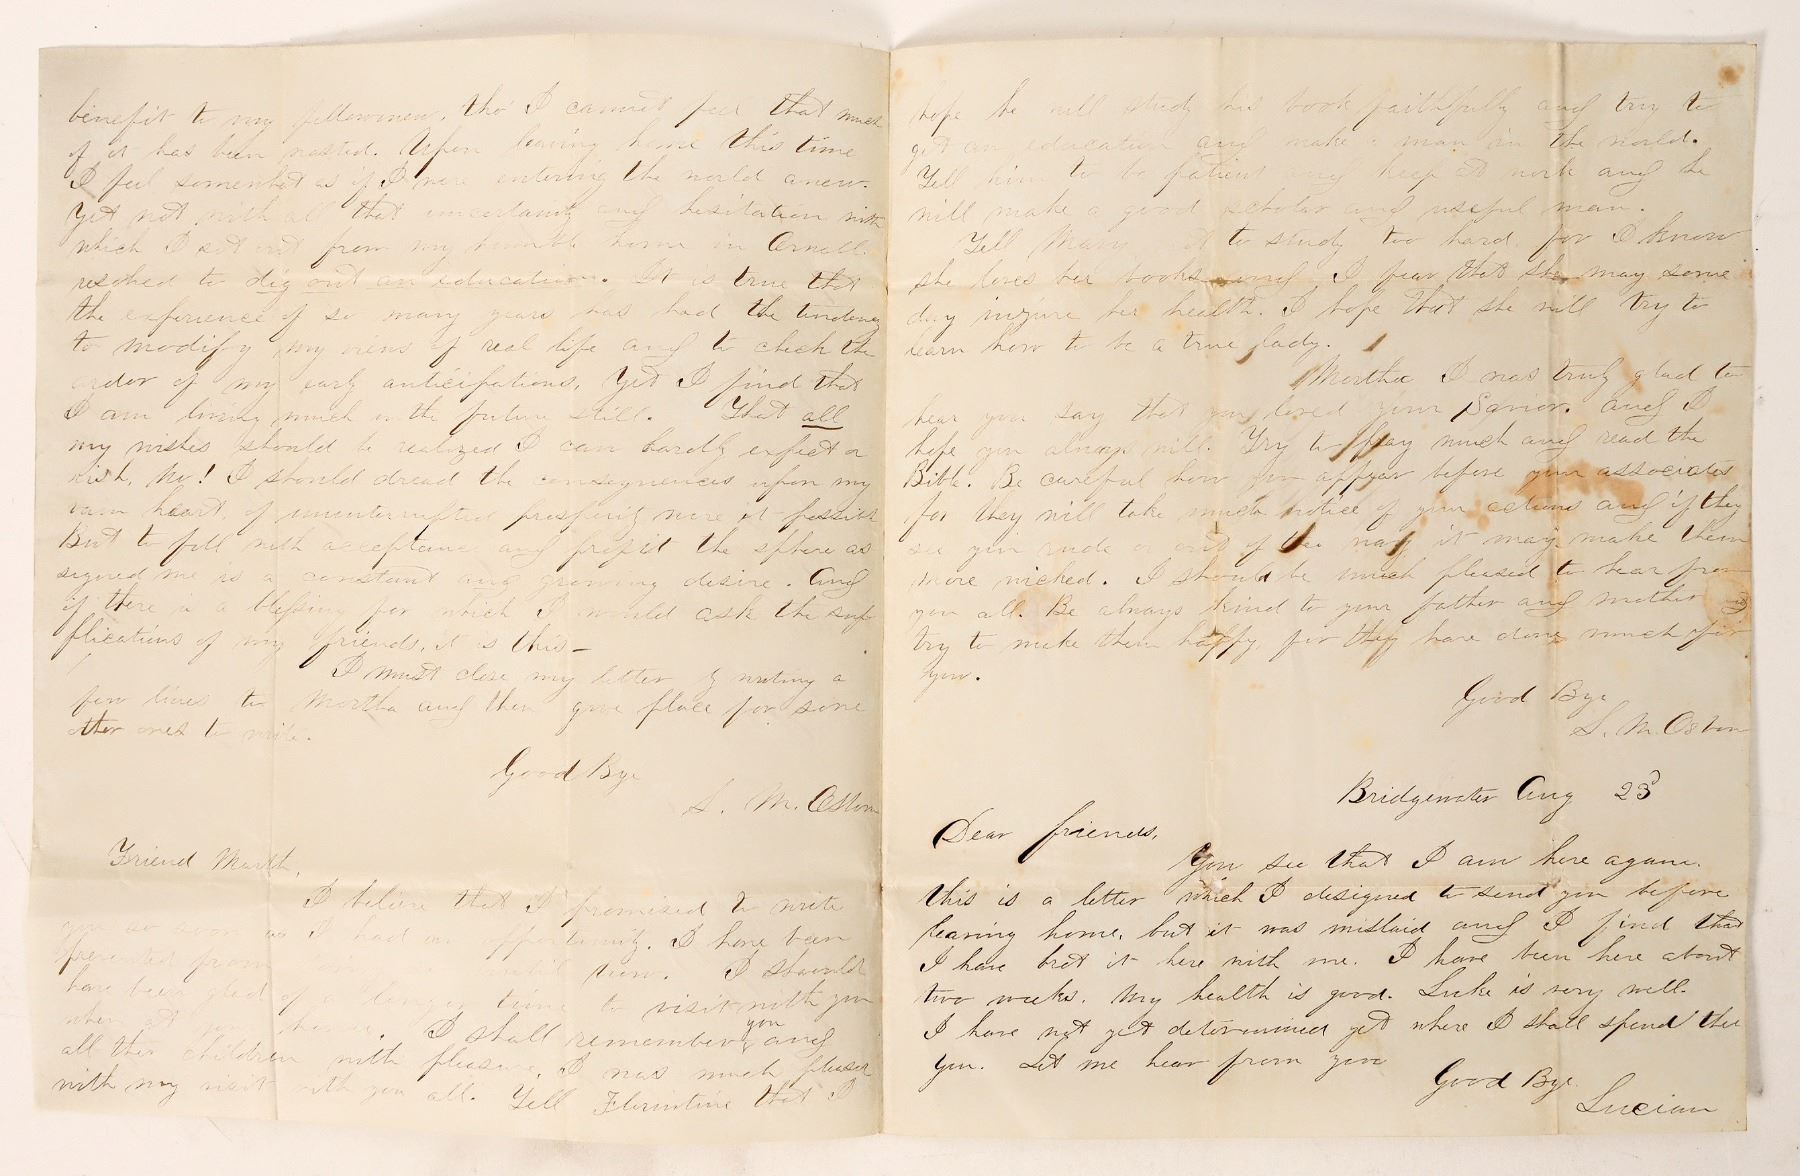 benefit to my fellowmen, tho' I cannot feel that much
of it has been wasted. Upon leaving home this time
I feel somewhat as if I were entering the world anew.
Yet not with all that uncertainty and hesitation with
which I set out from my humble home in
resolved to dig out an education. It is true that
the experience of so many years has had the tendency
to modify my views of real life and to check the
ardor of my early anticipations, Yet I find that
I am living much in the future still. That all
my wishes should be realized I can hardly expect or
wish, No! I should dread the consequences upon my
vain heart, of uninterrupted prosperity were it possible
But to fill with acceptance and profit the sphere as
signed me is a constant and growing desire. And
if there is a blessing for which I would ask the sup
plications of my friends, it is this—
I must close my letter by writing a
few lines to Martha and then give place for some
other ones to write.
Good Bye
L. M. Osborn
Friend Marth,
I believe that I promised to write
you as soon as I had an opportunity. I have been
prevented from until now. I should
have been glad of a longer time to visit with you
when at your house. I shall remember you and
all the children with pleasure, I was much pleased
with my visit with you all. Tell Florentine that I
hope he will study his book faithfully and try to
get an education and make a man in the world.
Tell him to be patient and keep at work and he
will make a good scholar and useful man.
Tell Mary not to study too hard, for I know
she loves her books and I fear that she may some
day injure her health. I hope that she will try to
learn how to be a true lady.
Martha I was truly glad to
hear you say that you loved your Savior. and I
hope you always will. Try to pray much and read the
Bible. Be careful how you appear before your associates
for they will take much notice of your actions and if they
see you rude or out of the way, it may make them
more wicked. I should be much pleased to hear from
you all. Be always kind to your father and mother and
try to make them happy, for they have done much for
you.
Good Bye
L. M. Osborn
Bridgewater Aug 23
Dear friends,
You see that I am here again.
this is a letter which I designed to send you before
leaving home, but it was mislaid and I find that
I have brot it here with me. I have been here about
two weeks. My health is good. Luke is very well.
I have not yet determined yet where I shall spend the
you. Let me hear from you
Good Bye.
Lucian